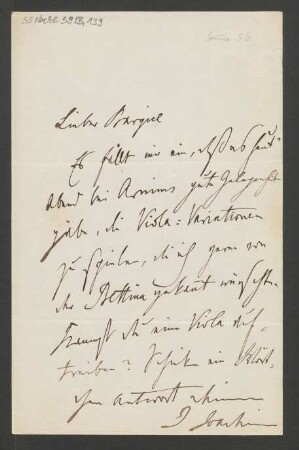 SS Nachl 59 B, 139
Lieber Bargiel
Es fällt mir ein, daß es heut'
Abend bei Arnims gute Gelegenheit
gäbe, die Viola-Variationen
zu spielen, die ich gern von
der Bettina gekannt wünschte.
Kannst du eine Viola auf-
treiben? Schick ein Wört-
chen Antwort
J Joachim